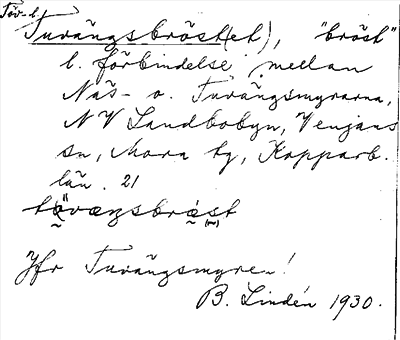 Töv-l.
Tuvängsbröst(et), "bröst"
l. förbindelse mellan
Näs- o. Tuvängsmyrarna,
NV Landbobyn, Venjans
sn, Mora tg, Kopparb.
län. 21
Jfr Tuvängsmyren!
B. Lindén 1930.